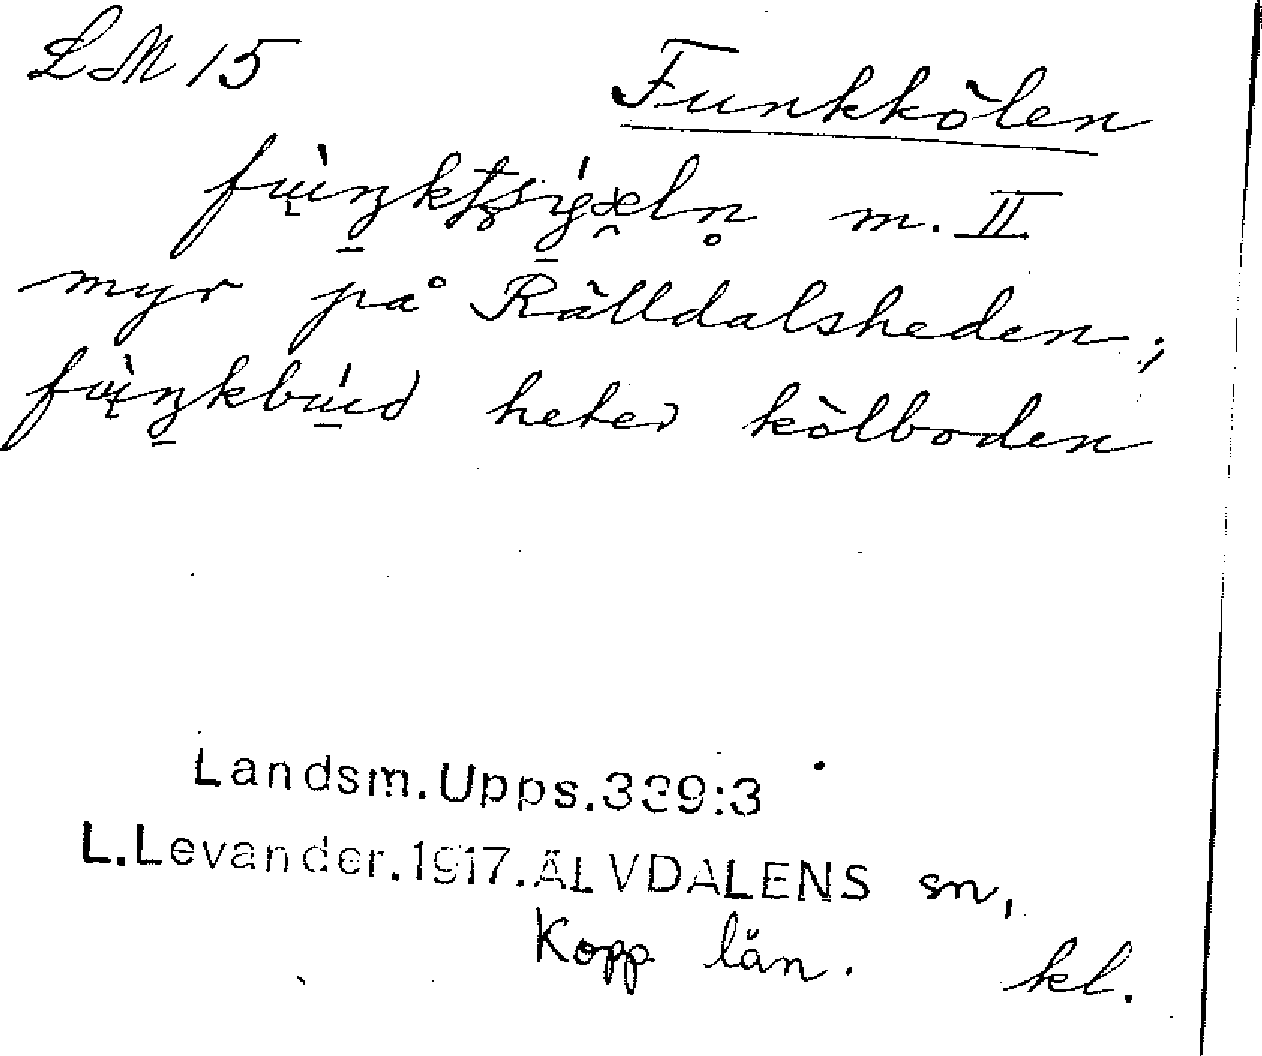 LM 15
Funkkölen
m. II
myr på Rälldalsheden;
heter kölboden
Landsm.Upps.339:3
L.Levander.1917.ÄLVDALENS sn,
Kopp län.
kl.